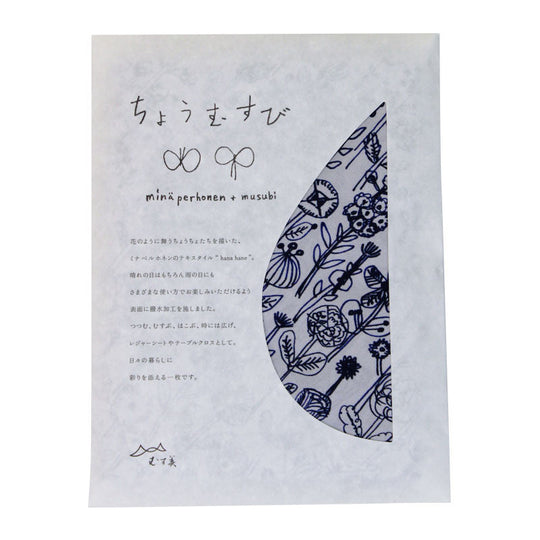 ちょうむすび
minä perhonen + musubi
花のように舞うちょうちょたちを描いた、
ミナ ペルホネンのテキスタイル“ hana hane”。
晴れの日はもちろん雨の日にも
さまざまな使い方でお楽しみいただけるよう
表面に撥水加工を施しました。
つつむ、むすぶ、はこぶ、時には広げ、
レジャーシートやテーブルクロスとして。
日々の暮らしに
彩りを添える一枚です。
むす美